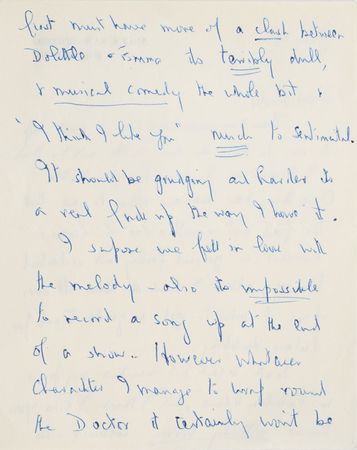 first must have more of a clash between
Dolittle & Emma its terribly dull,
& musical comedy the whole bit &
"I think I like you" much to sentimental.
It should be grudging and harder its
a real fuck up the way I have it.
I supose we fell in love with
the melody - also its impossible
to record a song up at the end
of a show - However whatever
character I manage to wrap round
the Doctor it certainly won't be